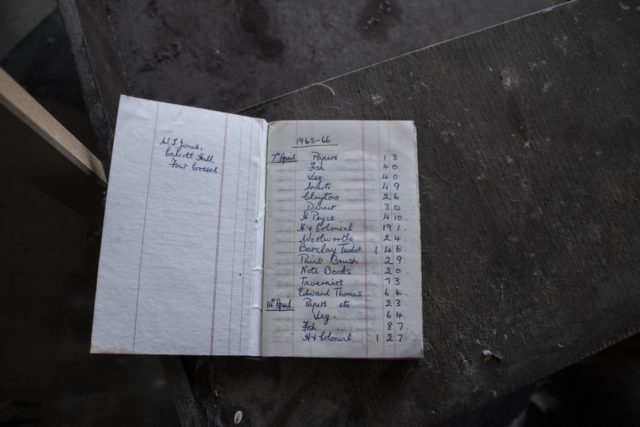 W S Jones,
Calcott Hall,
Four Crosses
1965-66
7th April Papers 1 3
Fish 4 0
Veg. 4 0
4 9
Claytons 2 6
Dinner 3 0
H Pryce 4 10.
H & Colonial 19 1.
Woolworths 2 4
Barclay 1 4 6
Paint Brush 2 9
Note Books 2 0
Taverners 7 3
Edward Thomas 6 4
14th April Papers etc 2 3.
Veg. 6 4
Fish 8 7.
H & Colonial 1 2 7.